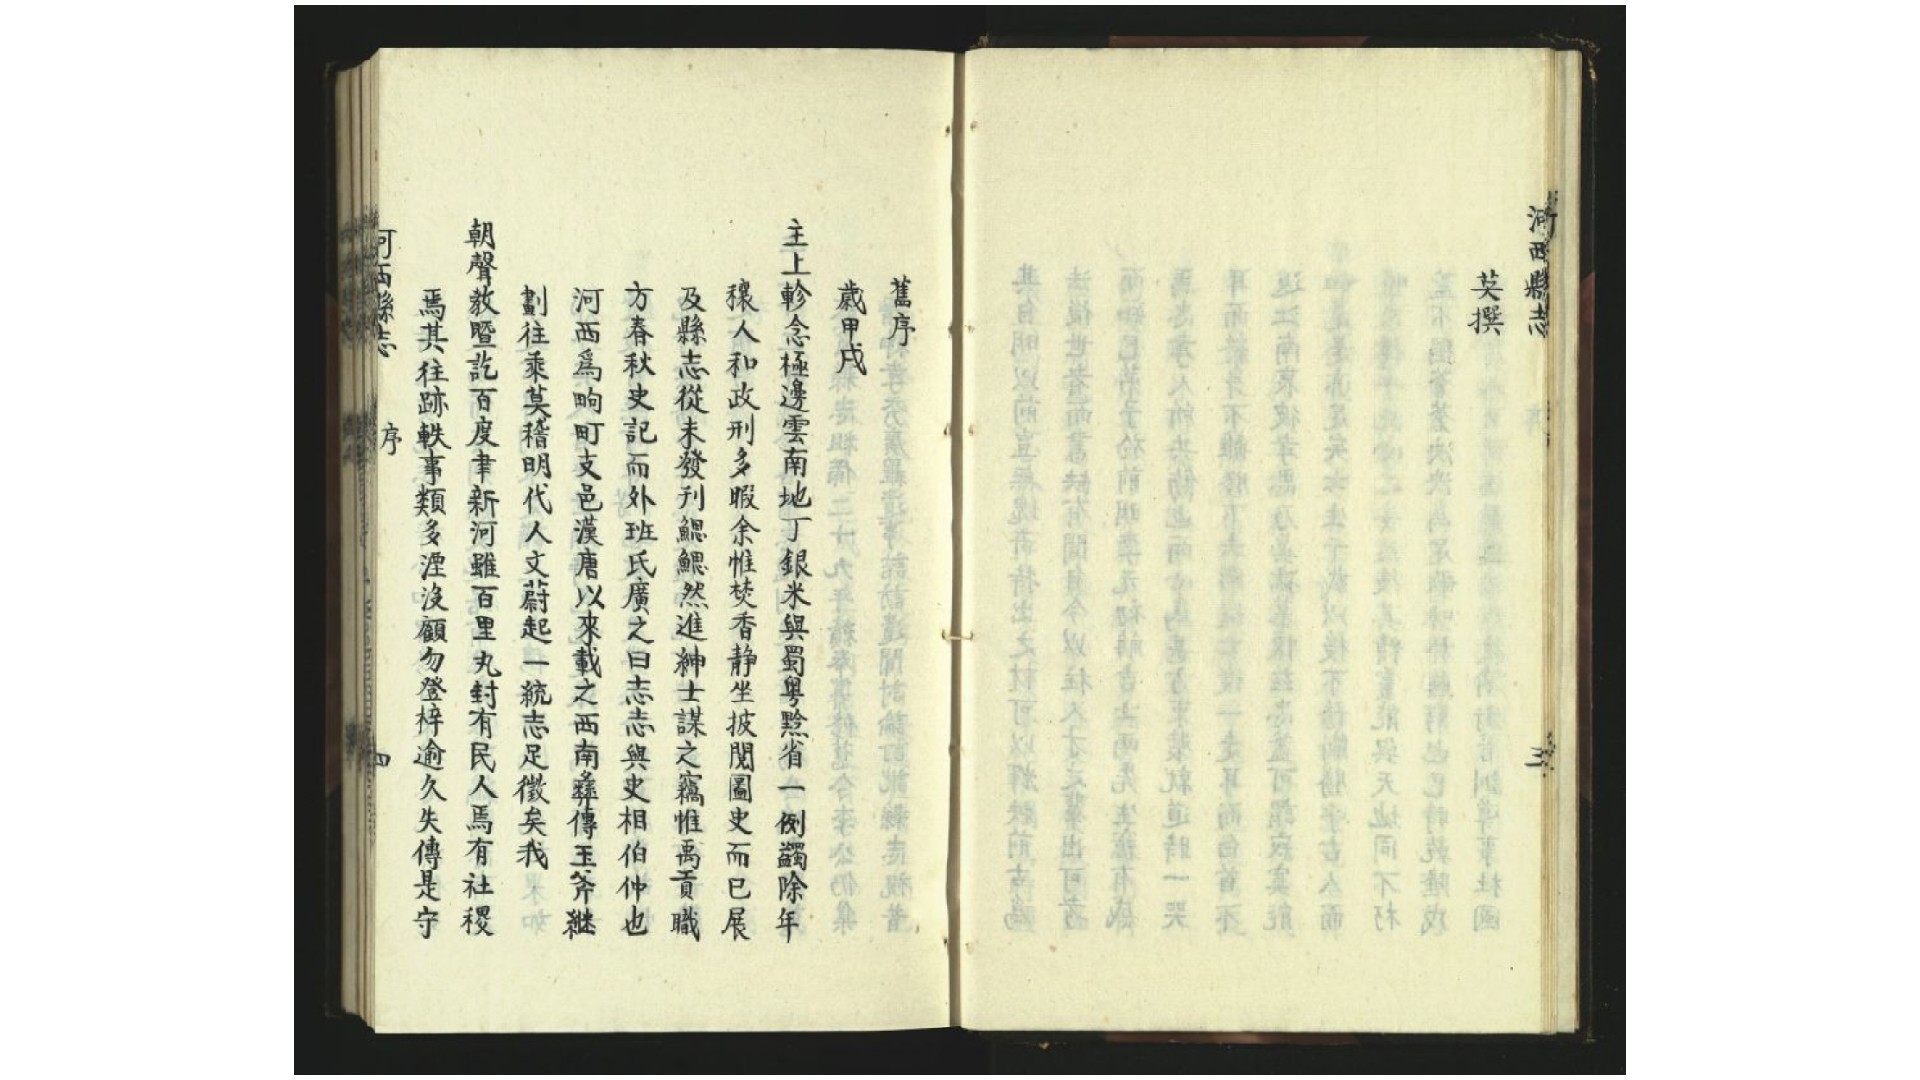 河西縣志
三
英撰
舊序
歲甲戌
主上軫念極邊雲南地丁銀米與蜀粵黔省一例蠲除年
穰人和政刑多暇余惟焚香靜坐披閱圖史而已展
及縣志從未發刊鰓鰓然進紳士謀之竊惟禹貢職
方春秋史記而外班氏廣之曰志志與史相伯仲也
河西爲畇町支邑漢唐以來載之西南彝傳玉斧繼
劃往乘莫稽明代人文蔚起一統志足徵矣我
朝聲教暨訖百度聿新河雖百里丸封有民人焉有社稷
焉其往跡軼事類多湮沒顧勿登梓逾久失傳是守
河西縣志
序
四